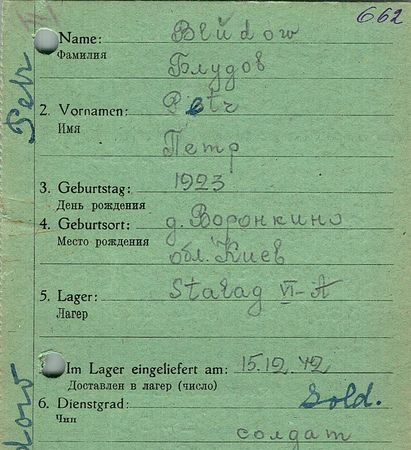 662
Name: Bludow
Фамилия
Блудов
2. Vornamen: Petr
Имя
Петр
3. Geburtstag: 1923
День рождения
4. Geburtsort: д. Воронкино
Место рождения
обл. Киев
5. Lager: Stalag VI-A
Лагерь
Im Lager eingeliefert am: 15.12.42
Доставлен в лагерь (число)
6. Dienstgrad: Sold.
Чин
солдат
Petr